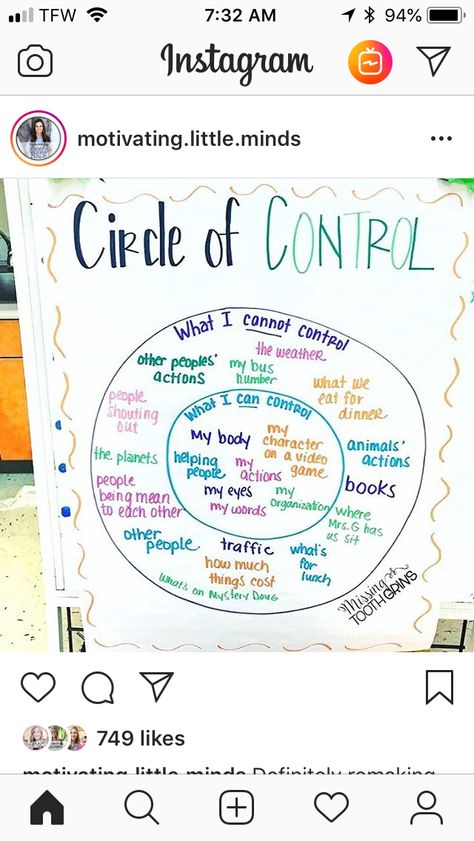 TFW 7:32 AM 94%
Instagram
motivating.little.minds
Circle of CONTROL
What I cannot control
the weather
other peoples'
actions
my bus
number
what we
eat for
dinner
people
shouting
out
What I can control
My body
my
character
on a video
game
animals'
actions
the planets
helping
people
my
actions
books
people
being mean
to each other
my eyes
my
organization
my words
where
Mrs. G has
us sit
other
people
traffic
what's
for
lunch
how much
things cost
What's on Mystery Doug
Missing
TOOTH GRINS
749 likes
motivating.little.minds Definitely remaking